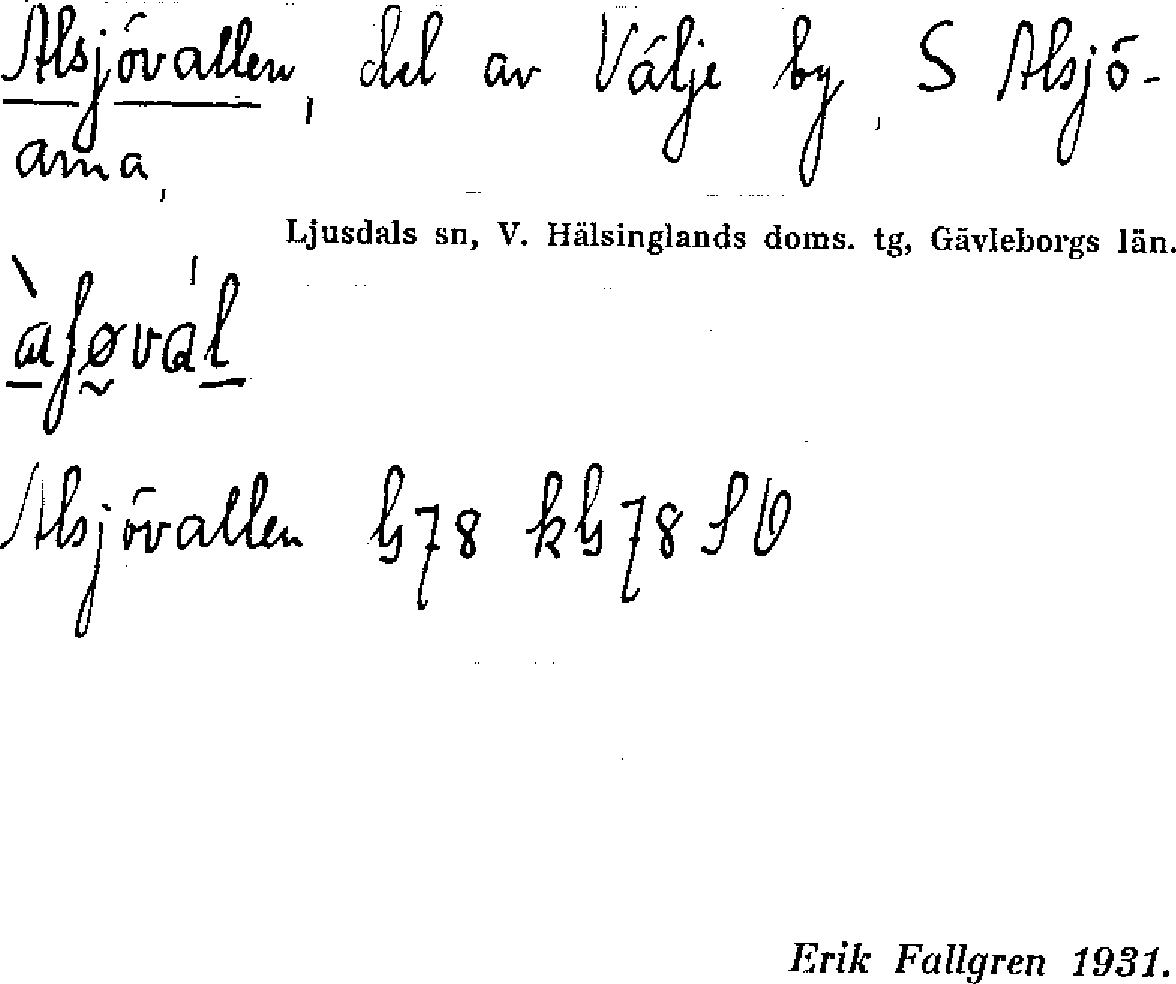 Alsjövallen, del av Välje by, S Alsjö-
arna,
Ljusdals sn, V. Hälsinglands doms. tg, Gävleborgs län.
Alsjövallen h78 kh78SV
Erik Fallgren 1931.